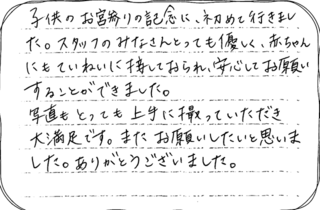 子供のお宮参りの記念に、初めて行きまし
た。スタッフのみなさんとっても優しく、赤ちゃん
にもていねいに接しておられ、安心してお願い
することができました。
写真もとっても上手に撮っていただき
大満足です。またお願いしたいと思いま
した。ありがとうございました。